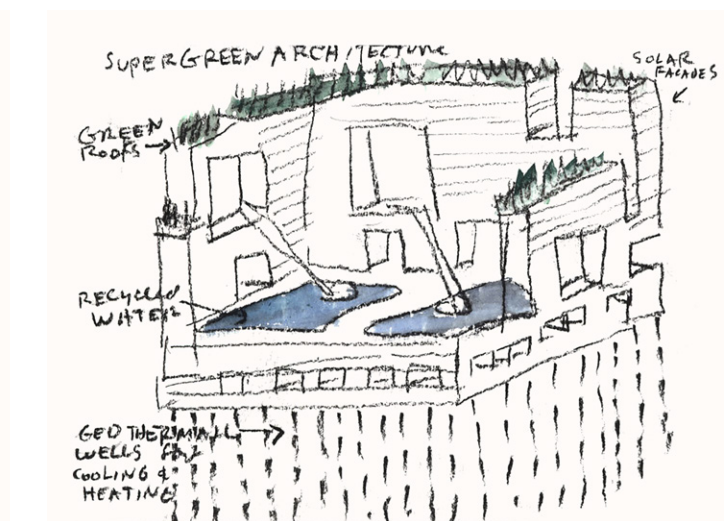 SUPERGREEN ARCHITECTURE
SOLAR
FACADES
GREEN
ROOFS
RECYCLED
WATER
GEOTHERMAL
WELLS FOR
COOLING &
HEATING